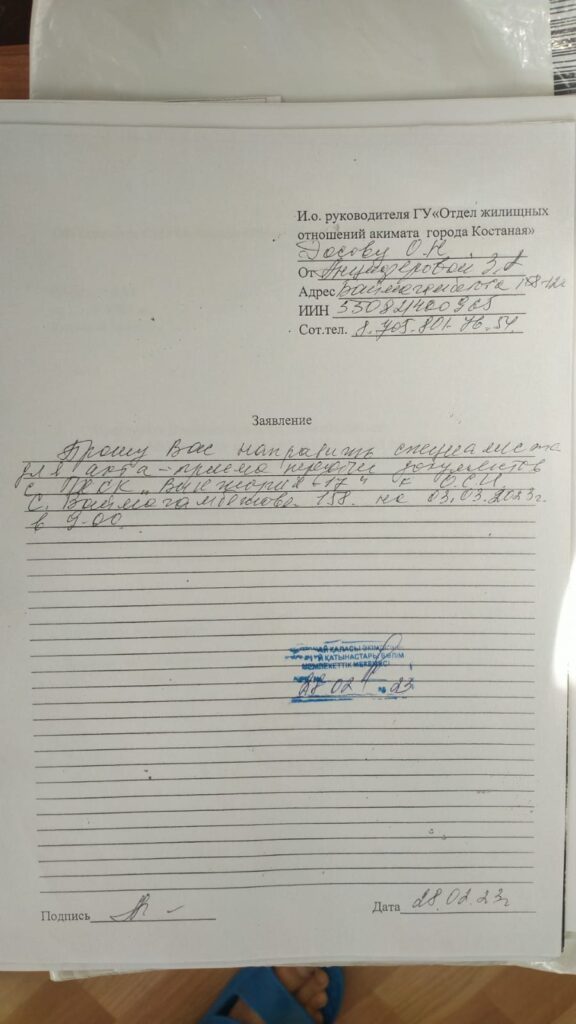 И.о. руководителя ГУ«Отдел жилищных
отношений акимата города Костаная»
Досову О.Н.
От Анциферовой З.
Адрес Баймагамбетова 158-12
ИИН 330821400965
Сот.тел. 8.705.801.76.54.
Заявление
Прошу Вас направить специалиста
для акта-приема передачи документов
с ПКСК „ 17“ к О.С.И.
С. Баймагамбетова. 158. на 03.03.2023г.
в 9-00
ҚАЛАСЫ ӘКІМ
ҚАТЫНАСТАРЫ БӨЛІМ
МЕМЛЕКЕТТІК МЕКЕМЕСІ
28 02 23
Подпись
Дата 28.02.23г